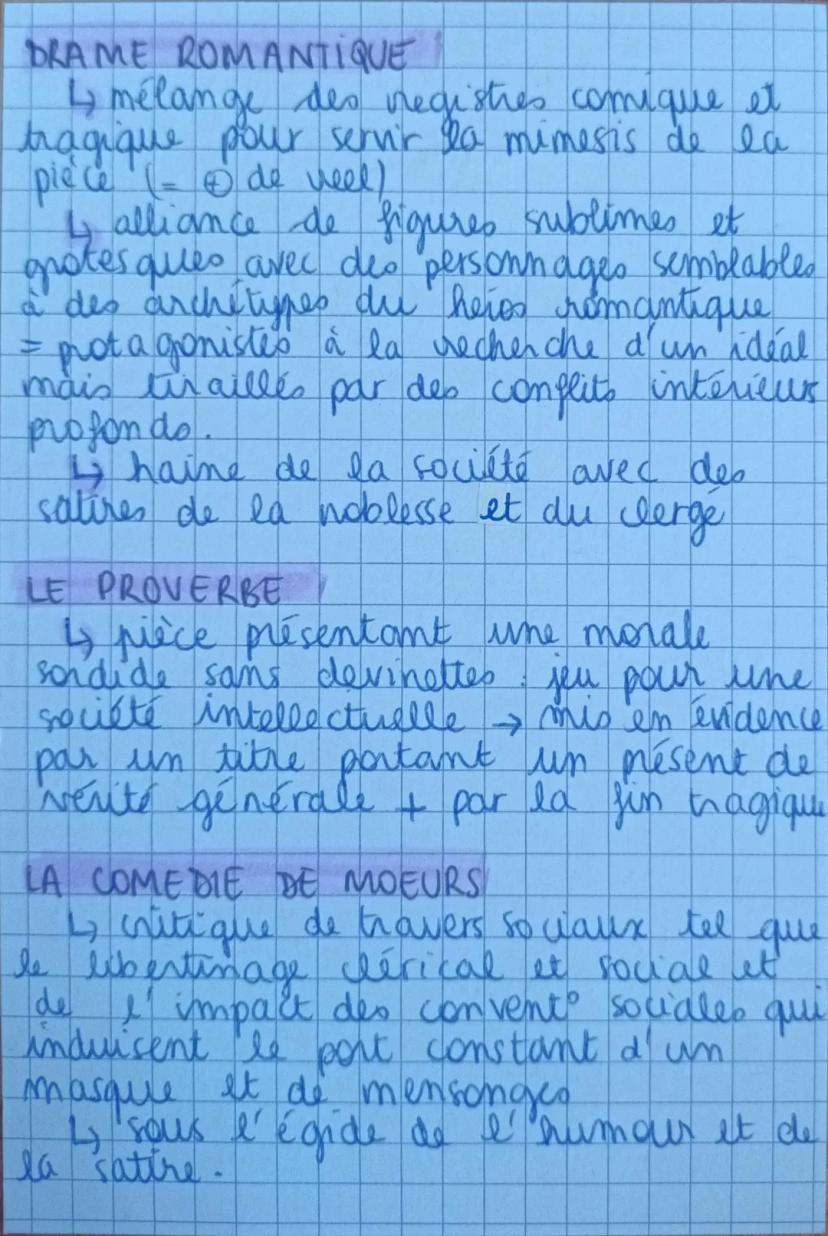 DRAME ROMANTIQUE
↳ mélange des registres comique et
tragique pour servir la mimesis de la
pièce (= ⊕ de réel)
↳ alliance de figures sublimes et
grotesques avec des personnages semblables
à des archétypes du héros romantique
= protagonistes à la recherche d'un idéal
mais tiraillés par des conflits intérieurs
profonds.
↳ haine de la société avec des
satires de la noblesse et du clergé
LE PROVERBE
↳ pièce présentant une morale
sordide sans devinettes : jeu pour une
société intellectuelle → mis en évidence
par un titre portant un présent de
vérité générale + par la fin tragique
LA COMEDIE DE MOEURS
↳ critique de travers sociaux tel que
le libertinage clérical et social et
de l'impact des convent° sociales qui
induisent le port constant d'un
masque et de mensonges
↳ sous l'égide de l'humour et de
la satire.